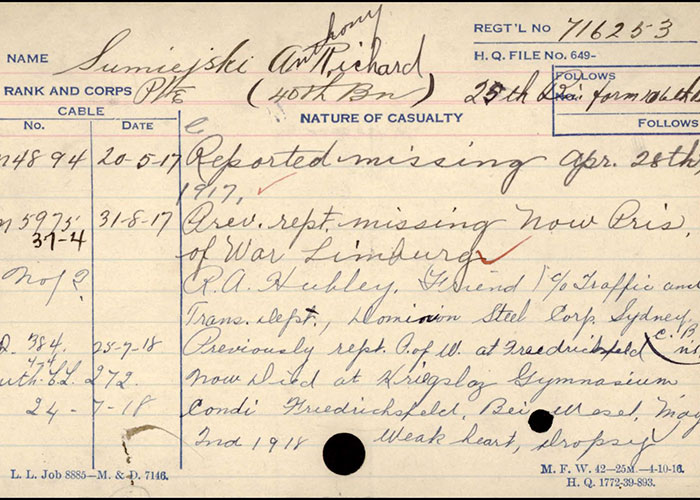 REGT'L NO 716253
NAME Sumiejski Anthony Richard
H. Q. FILE NO. 649-
RANK AND CORPS Pte (40th Bn) 25th form 106th
FOLLOWS
CABLE
NO. DATE
NATURE OF CASUALTY
FOLLOWS
4894 20-5-17 Reported missing Apr. 28th,
1917,
5975 31-8-17 Prev. rept. missing Now Pris.
37-4 of War Limburg
R. A. Hubley. Friend c/o Traffic and
Trans. Dept., Dominion Steel Corp. Sydney
C. B.
384. 25-7-18 Previously rept. P. of W. at Friedrichsfeld
272. Now Died at Kriegslaz Gymnasium
24-7-18 Condi Friedrichsfeld, Bei Wesel, May
2nd 1918 Weak heart, Dropsy
L. L. Job 8885—M. & D. 7146.
M. F. W. 42—25M.—4-10-16.
H. Q. 1772-39-893.